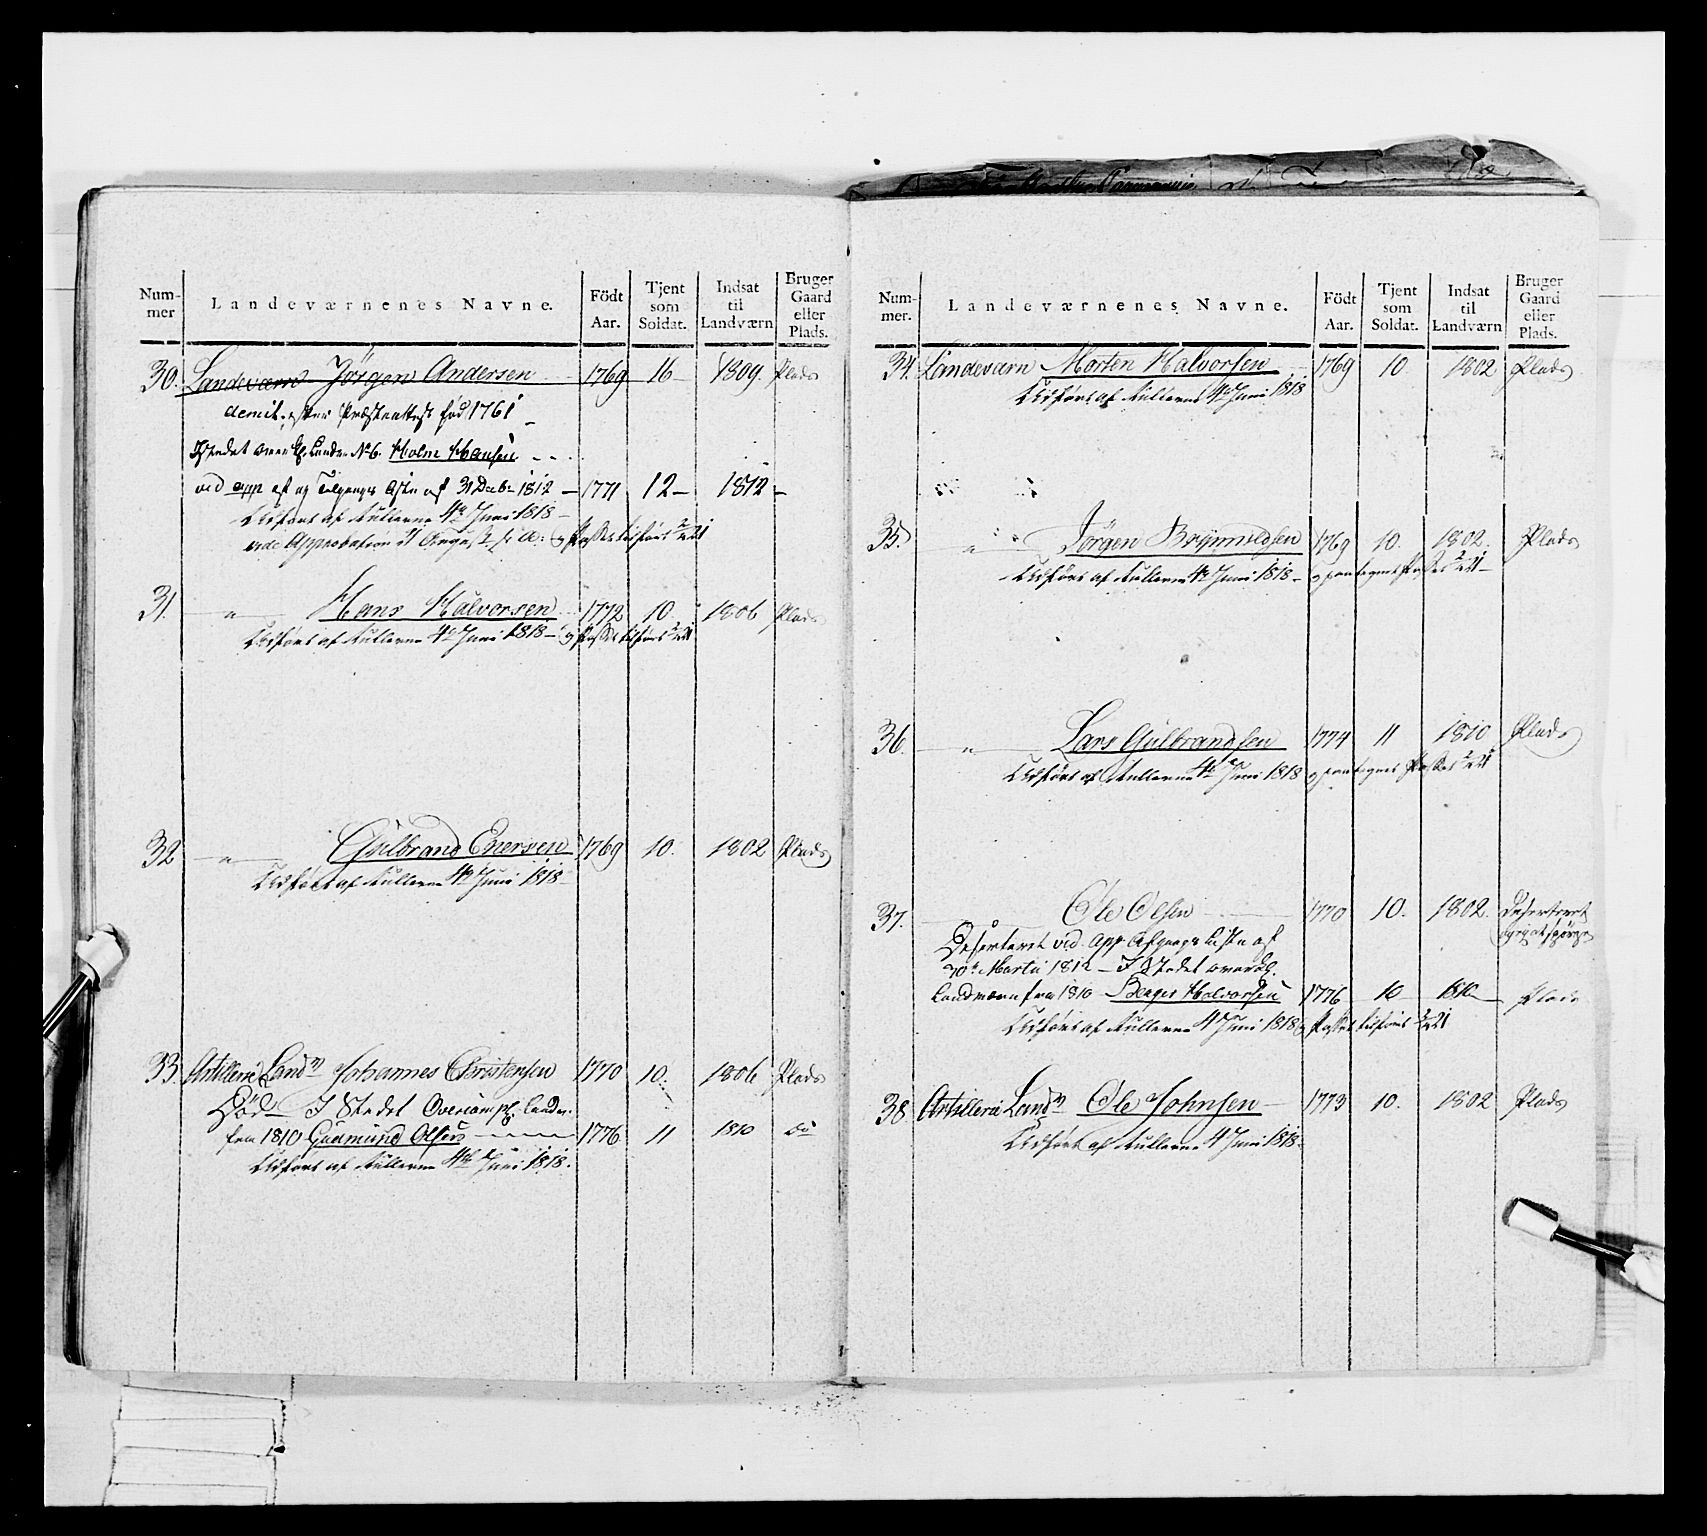 Num-
mer
Landeværnenes Navne.
Födt
Aar.
Tjent
som
Soldat.
Indsat
til
Landværn
Bruger
Gaard
eller
Plads.
30. Landeværn Jörgen Andersen 1769 16 1809. Plads
demit. efter Præsteattest fød 1761
Istedet No 6. Holm Hansen
ved app af og Tilgangs Liste af 31 Decbr 1812 1771 12 1812
Udført af Rullerne 4de Juni 1818
vide Approbation August
31. " Hans Halvorsen 1772 10 1806 Plads
Udført af Rullerne 4de Juni 1818
32 " Gulbrand Enersen 1769 10. 1802 Plads
Udført af Rullerne 4de Juni 1818
33 Artillerie Landv Johannes Christensen 1770 10. 1806 Plads
Død I Stedet Overcompl. Landv.
fra 1810 Gudmund Olsen 1776 11 1810 do
Udført af Rullerne 4de Juni 1818.
Num-
mer.
Landeværnenes Navne.
Födt
Aar.
Tjent
som
Soldat.
Indsat
til
Landværn
Bruger
Gaard
eller
Plads.
34. Landeværn Morten Halvorsen 1769 10. 1802 Plads
Udført af Rullerne 4de Juni 1818
35. " Jörgen Brÿnnildsen 1769 10. 1802. Plads
Udført af Rullerne 4de Juni 1818
36. " Lars Gulbrandsen 1774 11 1810 Plads
Udført af Rullerne 4de Juni 1818
37. Ole Olsen 1770 10. 1802. Deserteret
Deserteret vid. App. Afgangs Liste af
Martii 1812 I Stedet
Landværn fra 1810 Berger Halvorsen 1776 10 1810 Plads
Udført af Rullerne 4 Juni 1818
38 Artilleri Landv Ole Johnsen 1773 10. 1802 Plads
Udført af Rullerne 4 Juni 1818.